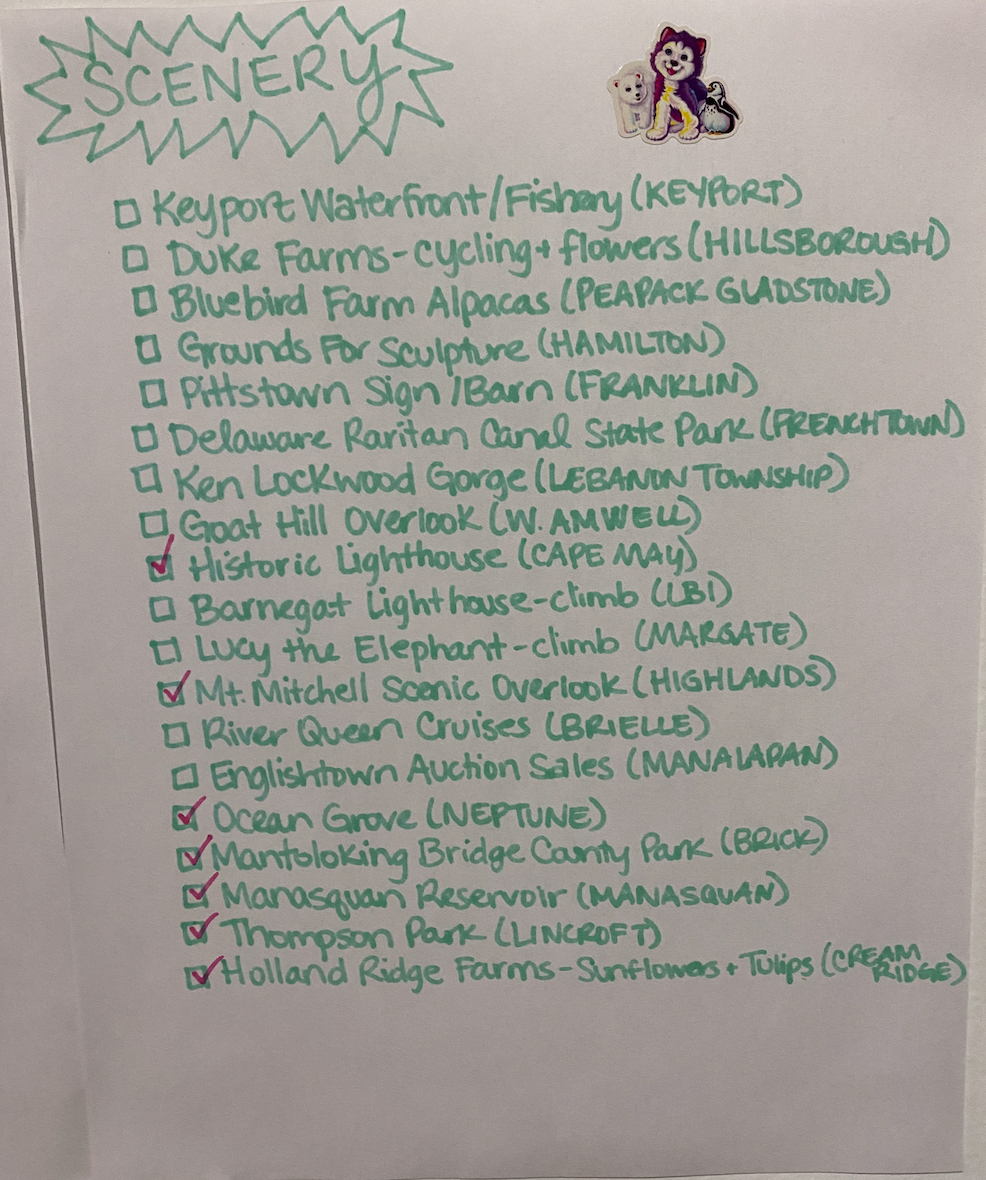 SCENERY
☐ Keyport Waterfront/Fishery (KEYPORT)
☐ Duke Farms-cycling+ flowers (HILLSBOROUGH)
☐ Bluebird Farm Alpacas (PEAPACK GLADSTONE)
☐ Grounds For Sculpture (HAMILTON)
☐ Pittstown Sign /Barn (FRANKLIN)
☐ Delaware Raritan Canal State Park (FRENCHTOWN)
☐ Ken Lockwood Gorge (LEBANON TOWNSHIP)
☐ Goat Hill Overlook (W. AMWELL)
☑ Historic Lighthouse (CAPE MAY)
☐ Barnegat Lighthouse-climb (LBI)
☐ Lucy the Elephant-climb (MARGATE)
☑ Mt. Mitchell Scenic Overlook (HIGHLANDS)
☐ River Queen Cruises (BRIELLE)
☐ Englishtown Auction Sales (MANALAPAN)
☑ Ocean Grove (NEPTUNE)
☑ Mantoloking Bridge County Park (BRICK)
☑ Manasquan Reservoir (MANASQUAN)
☑ Thompson Park (LINCROFT)
☑ Holland Ridge Farms-Sunflowers + Tulips (CREAM
RIDGE)